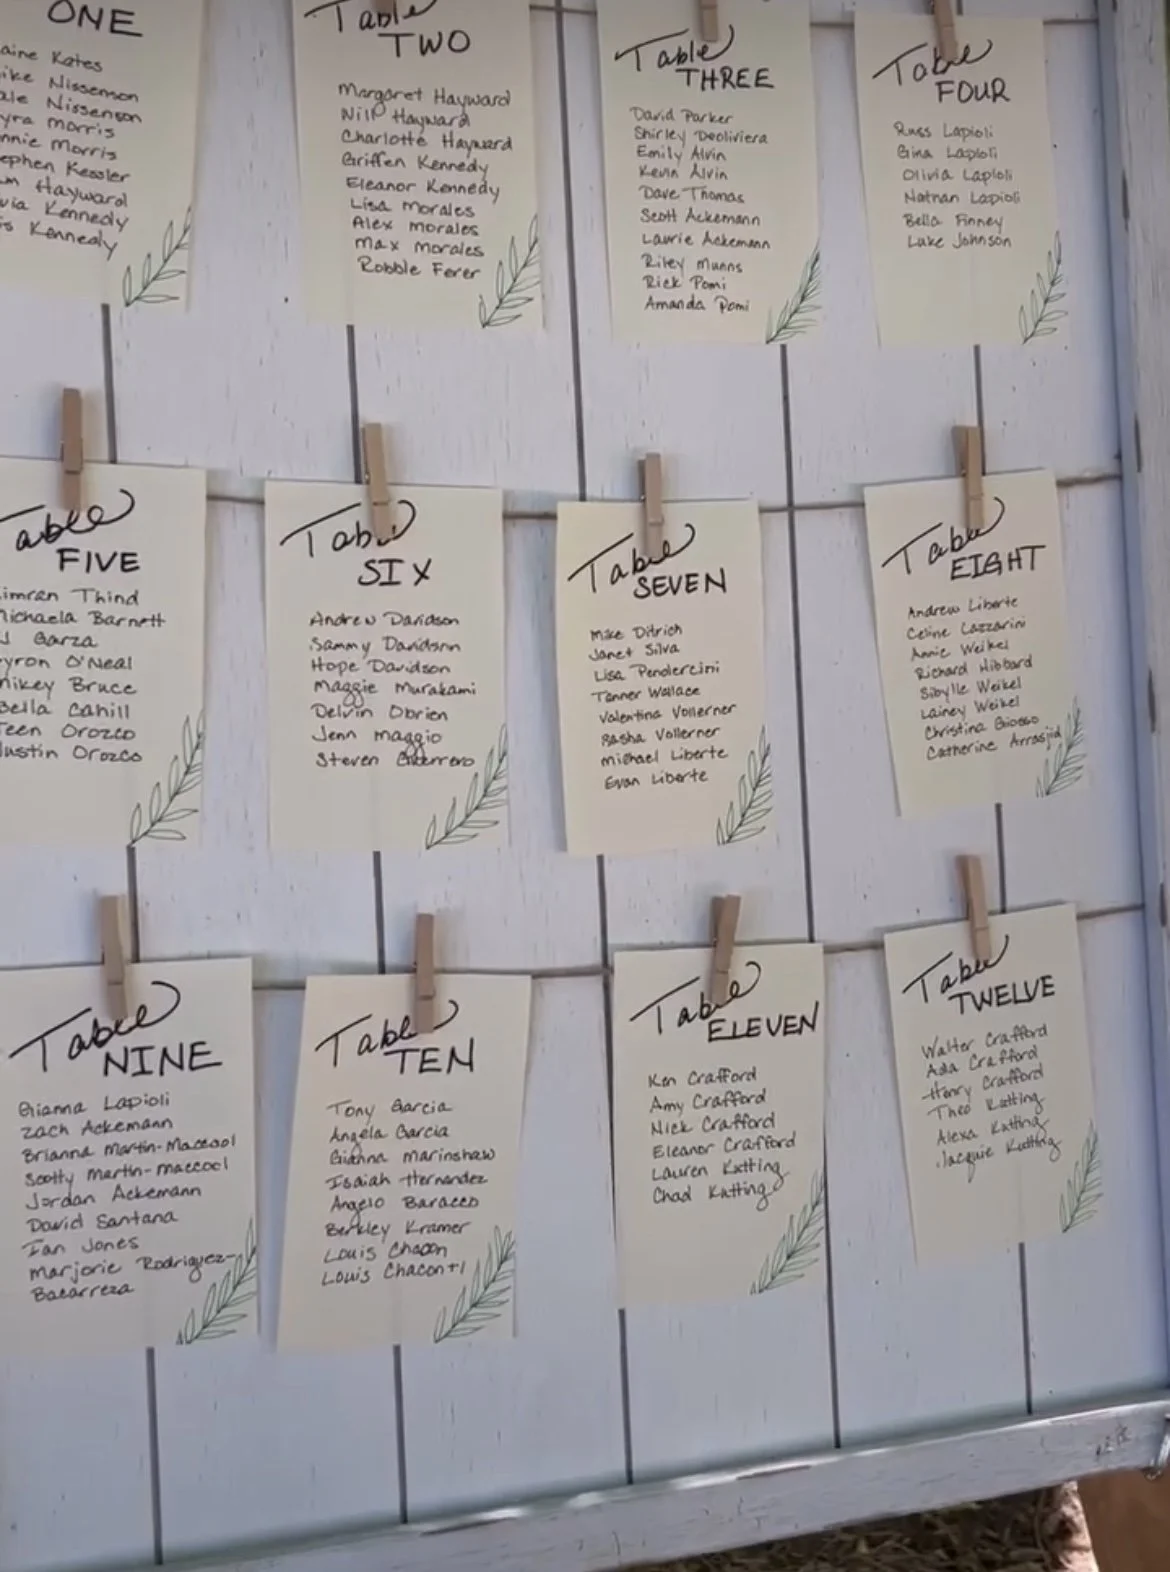 ONE
aine Kates
ike Nissenson
ale Nissenson
yra Morris
nnie Morris
ephen Kessler
m Hayward
via Kennedy
is Kennedy
Table
TWO
Margaret Hayward
Will Hayward
Charlotte Hayward
Griffen Kennedy
Eleanor Kennedy
Lisa Morales
Alex Morales
Max Morales
Robbie Ferer
Table
THREE
David Parker
Shirley Deoliviera
Emily Alvin
Kevin Alvin
Dave Thomas
Scott Ackemann
Laurie Ackemann
Riley Munns
Rick Pomi
Amanda Pomi
Table
FOUR
Russ Lapioli
Gina Lapioli
Olivia Lapioli
Nathan Lapioli
Bella Finney
Luke Johnson
Table
FIVE
imran Thind
Michaela Barnett
J Garza
yron O'Neal
Mikey Bruce
Bella Cahill
Teen Orozco
Justin Orozco
Table
SIX
Andrew Davidson
Sammy Davidson
Hope Davidson
Maggie Murakami
Delvin Obrien
Jenn Maggio
Steven Guerrero
Table
SEVEN
Mike Ditrich
Janet Silva
Lisa Pendercini
Tanner Wallace
Valentina Vollerner
Sasha Vollerner
Michael Liberte
Evan Liberte
Table
EIGHT
Andrew Liberte
Celine Lazzarini
Annie Weikel
Richard Hibbard
Sibylle Weikel
Lainey Weikel
Christina Giosso
Catherine Arrasjid
Table
NINE
Gianna Lapioli
Zach Ackemann
Brianna Martin-Maccool
Scotty Martin-Maccool
Jordan Ackemann
David Santana
Ian Jones
Marjorie Rodriguez-
Bacarreza
Table
TEN
Tony Garcia
Angela Garcia
Gianna Marinshaw
Isaiah Hernandez
Angelo Baracco
Berkley Kramer
Louis Chacon
Louis Chacon+1
Table
ELEVEN
Ken Crafford
Amy Crafford
Nick Crafford
Eleanor Crafford
Lauren Kutting
Chad Kutting
Table
TWELVE
Walter Crafford
Ada Crafford
Henry Crafford
Theo Kutting
Alexa Kutting
Jacquie Kutting